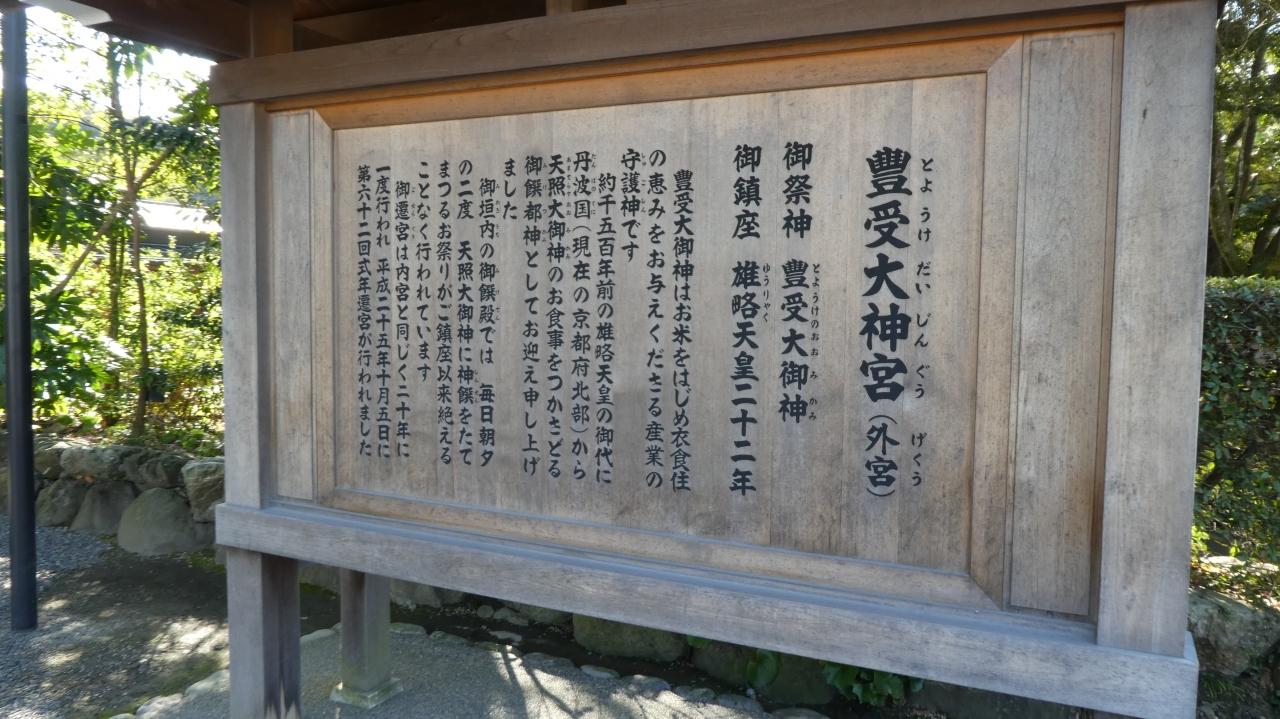 豊受大神宮（外宮）
とようけだいじんぐう　げくう
御祭神　豊受大御神
とようけのおおみかみ
御鎮座　雄略天皇二十二年
ゆうりやく
豊受大御神はお米をはじめ衣食住
の恵みをお与えくださる産業の
守護神です
約千五百年前の雄略天皇の御代に
丹波国（現在の京都府北部）から
天照大御神のお食事をつかさどる
御饌都神としてお迎え申し上げ
ました
御垣内の御饌殿では　毎日朝夕
の二度　天照大御神に神饌をたて
まつるお祭りがご鎮座以来絶える
ことなく行われています
御遷宮は内宮と同じく二十年に
一度行われ　平成二十五年十月五日に
第六十二回式年遷宮が行われました